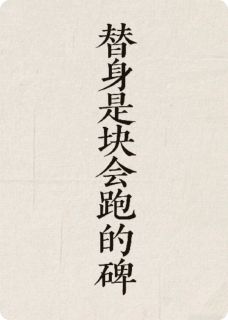 替身是块会跑的碑